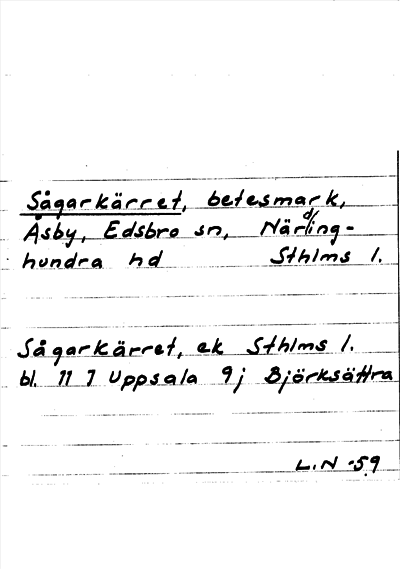 Sågarkärret, betesmark,
Åsby, Edsbro sn, Närding-
hundra hd Sthlms l.
Sågarkärret, ek Sthlms l.
bl. 11 I Uppsala 9j Björksättra
L.N -59